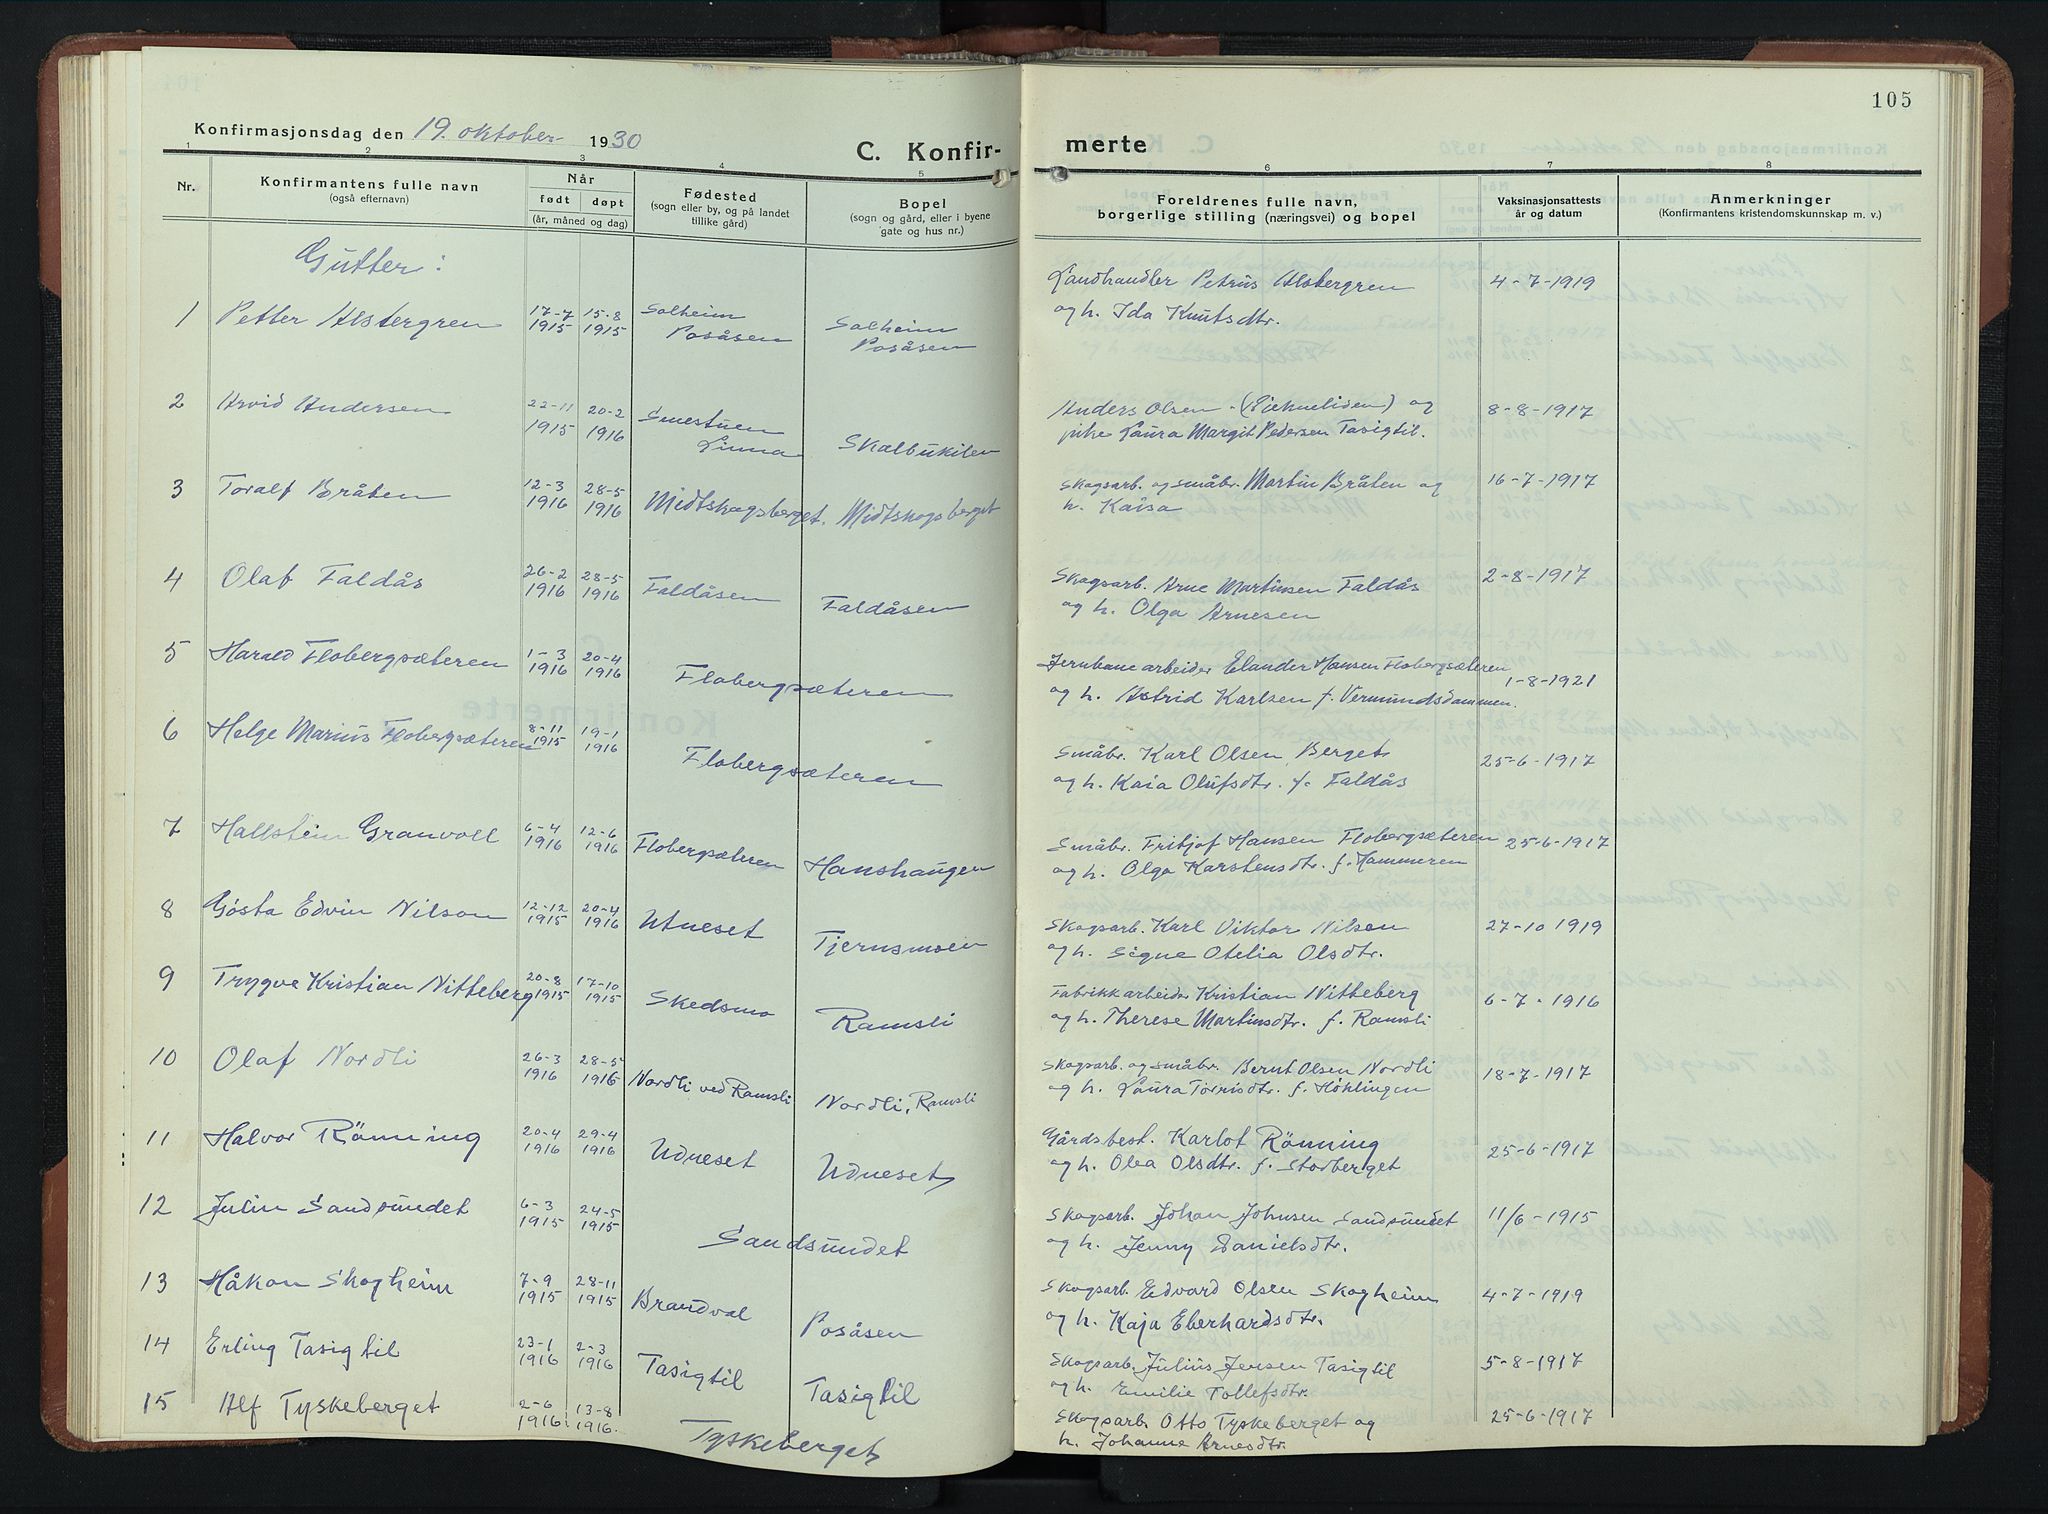 105
Konfirmasjonsdag den 19. oktober 1930
C. Konfir-
merte
1 2 3 4 5 6 7 8
Nr.
Konfirmantens fulle navn
(også efternavn)
Når
født døpt
(år, måned og dag)
Fødested
(sogn eller by, og på landet
tillike gård)
Bopel
(sogn og gård, eller i byene
gate og hus nr.)
Foreldrenes fulle navn,
borgerlige stilling (næringsvei) og bopel
Vaksinasjonsattests
år og datum
Anmerkninger
(Konfirmantens kristendomskunnskap m. v.)
Gutter:
1 Petter Alstergren 17-7 1915 15-8 1915 Solheim Posåsen Solheim Posåsen
Landhandler Petrus Alstergren 4-7-1919
og h. Ida Knutsdtr.
2 Arvid Andersen 22-11 1915 20-2 1916 Smestuen Linna Skalbukilen
Anders Olsen og 8-8-1917
pike Laura Margit Pedersen Tasigtil.
3 Toralf Bråten 12-3 1916 28-5 1916 Midtskogsberget. Midtskogsberget
Skogsarb. og småbr. Martin Bråten og 16-7-1917
h. Kaisa
4 Olaf Faldås 26-2 1916 28-5 1916 Faldåsen Faldåsen
Skogsarb. Arne Martinsen Faldås 2-8-1917
og h. Olga Arnesen
5 Harald Flobergsæteren 1-3 1916 20-4 1916 Flobergsæteren
Jernbanearbeider Elander Hansen Flobergsæteren 1-8-1921
og h. Astrid Karlsen f. Vermundsdammen.
6 Helge Marius Flobergsæteren 8-11 1915 19-1 1916 Flobergsæteren
Småbr. Karl Olsen Berget 25-6-1917
og h. Kaia Olufsdtr. f. Faldås
7 Hallstein Granvoll 6-4 1916 12-6 1916 Flobergsæteren Hanshaugen
Småbr. Fritjof Hansen Flobergsæteren 25-6-1917
og h. Olga Karstensdtr. f. Hammeren
8 Gösta Edvin Nilson 12-12 1915 20-4 1916 Utneset Tjernsmoen
Skogsarb. Karl Viktor Nilson 27-10 1919
og h. Signe Otelia Olsdtr.
9 Trygve Kristian Nitteberg 20-8 1915 17-10 1915 Skedsmo Ramsli
Fabrikkarbeider Kristian Nitteberg 6-7-1916
og h. Therese Martinsdtr. f. Ramsli
10 Olaf Nordli 26-3 1916 28-5 1916 Nordli ved Ramsli Nordli, Ramsli
Skogsarb. og småbr. Bernt Olsen Nordli 18-7-1917
og h. Laura Torrisdtr. f. Höklingen
11 Halvor Rönning 20-4 1916 29-4 1916 Udneset Udneset
Gårdsbest. Karlot Rönning 25-6-1917
og h. Olea Olsdtr. f. Storberget
12 Julin Sandsundet 6-3 1915 24-5 1915 Sandsundet
Skogsarb. Johan Johnsen Sandsundet 11/6-1915
og h. Jenny Danielsdtr.
13 Håkon Skogheim 7-9 1915 28-11 1915 Brandval Posåsen
Skogsarb. Edvard Olsen Skogheim 4-7-1919
og h. Kaja Eberhardsdtr.
14 Erling Tasigtil 23-1 1916 2-3 1916 Tasigtil Tasigtil
Skogsarb. Julius Jensen Tasigtil 5-8-1917
og h. Emilie Tollefsdtr.
15 Alf Tyskeberget 2-6 1916. 13-8 1916. Tyskeberget
Skogsarb. Otto Tyskeberget og 25-6-1917
h. Johanne Arnesdtr.